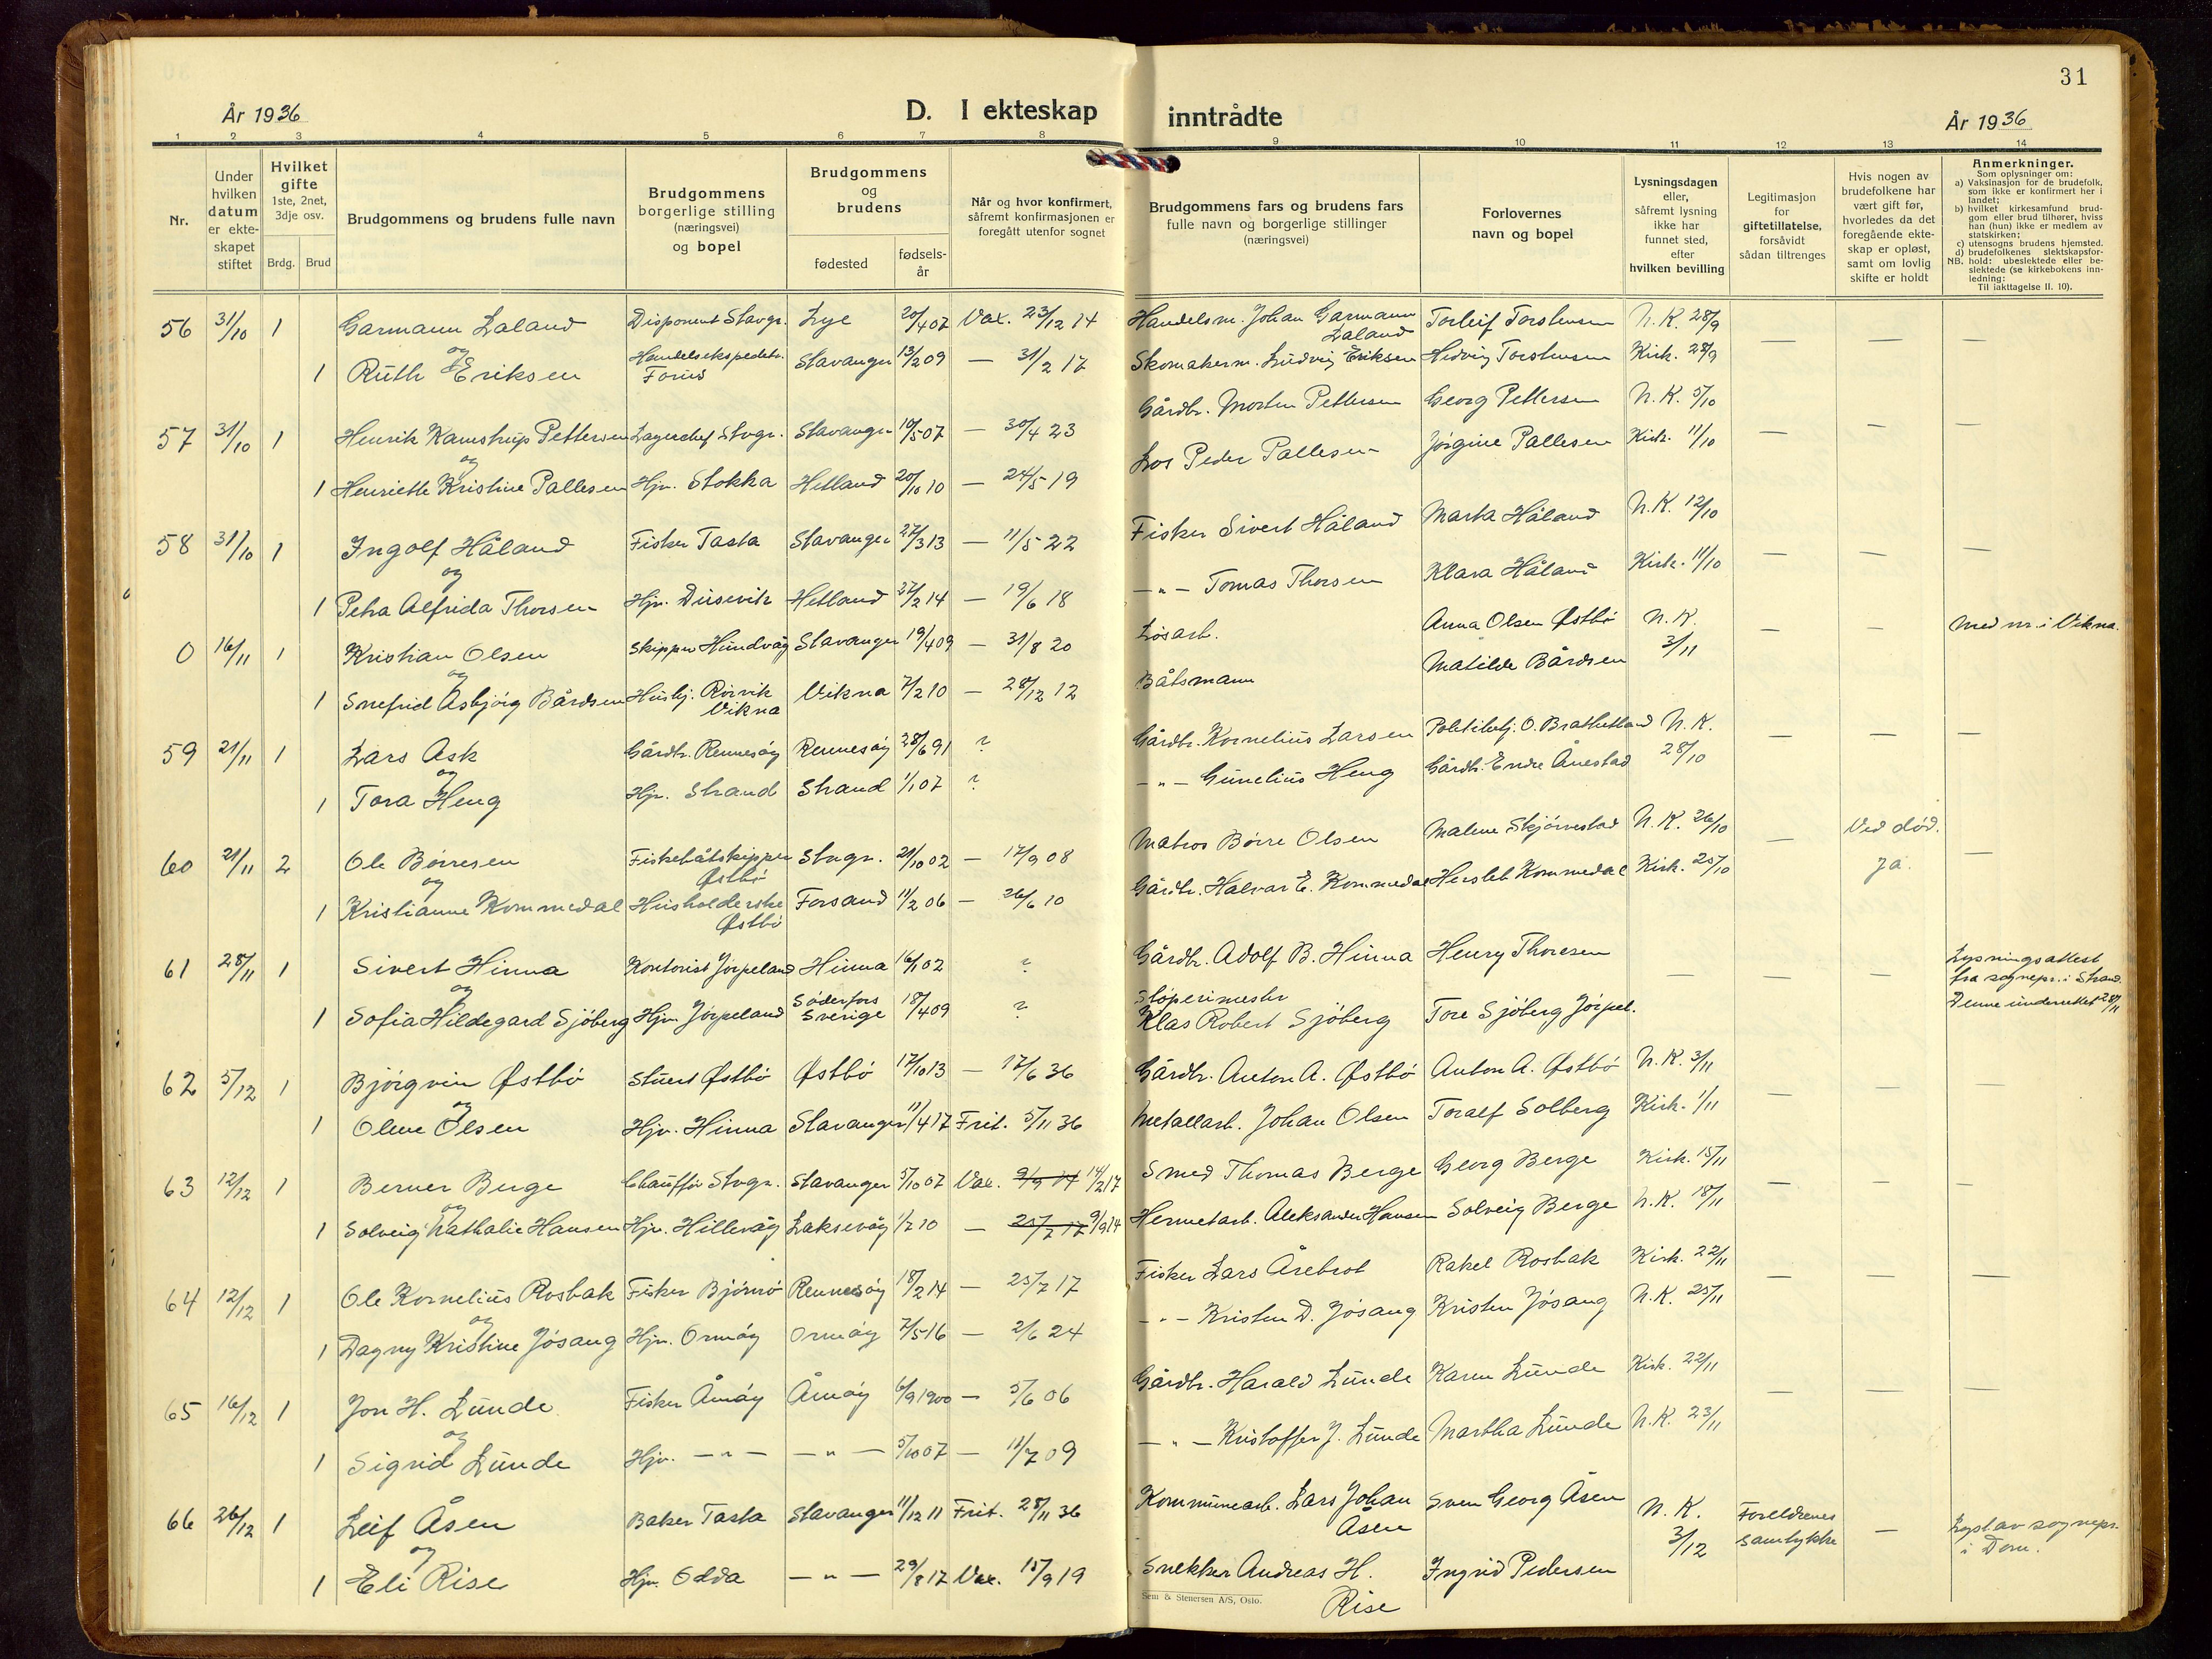 31
År 1936
D. I ekteskap inntrådte
År 1936
1 2 3 4 5 6 7 8 9 10 11 12 13 14
Nr.
Under hvilken datum er ekteskapet stiftet
Hvilket gifte 1ste, 2net, 3dje osv.
Brdg. Brud
Brudgommens og brudens fulle navn
Brudgommens borgerlige stilling (næringsvei) og bopel
Brudgommens og brudens
fødested
fødselsår
Når og hvor konfirmert, såfremt konfirmasjonen er foregått utenfor sognet
Brudgommens fars og brudens fars fulle navn og borgerlige stillinger (næringsvei)
Forlovernes navn og bopel
Lysningsdagen eller, såfremt lysning ikke har funnet sted, efter hvilken bevilling
Legitimasjon for giftetillatelse, forsåvidt sådan tiltrenges
Hvis nogen av brudefolkene har vært gift før, hvorledes da det foregående ekteskap er opløst, samt om lovlig skifte er holdt
Anmerkninger.
Som oplysninger om:
a) Vaksinasjon for de brudefolk, som ikke er konfirmert her i landet;
b) hvilket kirkesamfund brudgom eller brud tilhører, hviss han (hun) ikke er medlem av statskirken;
c) utensogns brudens hjemsted.
d) brudefolkenes slektskapsforhold: ubeslektede eller beslektede (se kirkebokens innledning:
NB.
Til iakttagelse II. 10).
56 31/10 1 Garmann Laland Disponent Stavgr. Lye 20/4 07 Vax. 23/12 14 Handelsm. Johan Garmann Laland Torleif Torstensen N.K. 28/9 — — —
og
1 Ruth Eriksen Handelsekspeditr. Forus Stavanger 13/2 09 — 31/2 17 Skomakerm. Ludvig Eriksen Hedvig Torstensen Kirk. 28/9
57 31/10 1 Henrik Kamstrup Pettersen Lagerchef Stvgr. Stavanger 10/5 07 — 30/4 23 Gårdbr. Morten Pettersen Georg Pettersen N.K. 5/10 — — —
og
1 Henriette Kristine Pallesen Hjv. Stokka Hetland 20/10 10 — 24/5 19 Los Peder Pallesen Jørgine Pallesen Kirk. 11/10
58 31/10 1 Ingolf Håland Fisker Tasta Stavanger 27/3 13 — 11/5 22 Fisker Sivert Håland Marta Håland N.K. 12/10 — — —
og
1 Petra Alfrida Thorsen Hjv. Dusevik Hetland 27/2 14 — 19/6 18 — " — Tomas Thorsen Klara Håland Kirk. 11/10
0 16/11 1 Kristian Olsen Skipper Hundvåg Stavanger 19/4 09 — 31/8 20 Løsarb. Anna Olsen Østbø N.K. 3/11 — — Med nr. i Vikna.
og
1 Snefrid Asbjørg Bårdsen Husbj. Rørvik Vikna Vikna 7/2 10 — 28/12 12 Båtsmann Matilde Bårdsen
59 21/11 1 Lars Ask Gårdbr. Rennesøy Rennesøy 28/6 91 ? Gårdbr. Kornelius Larsen Politibetj. O. Brathetland N.K. 28/10 — — —
og
1 Tora Heng Hjv. Strand Strand 1/1 07 ? — " — Gunelius Heng Gårdbr. Endre Ånestad
60 21/11 2 Ole Børresen Fiskebåtskipper Østbø Stvgr. 21/10 02 — 17/9 08 Matros Børre Olsen Malene Skjørestad N.K. 26/10 — Ved død. Ja. —
og
1 Kristianne Kommedal Husholderske Østbø Forsand 11/2 06 — 26/6 10 Gårdbr. Halvar E. Kommedal Herslet Kommedal Kirk. 25/10
61 28/11 1 Sivert Hinna Kontorist Jørpeland Hinna 16/1 02 ? Gårdbr. Adolf B. Hinna Henry Thoresen — — — Lysningsattest fra sognepr. i Strand. Denne underrettet 28/11
og
1 Sofia Hildegard Sjöberg Hjv. Jørpeland Söderfors Sverige 18/4 09 ? Støperimestr Klas Robert Sjöberg Tore Sjöberg Jørpel.
62 5/12 1 Bjørgvin Østbø Stuert Østbø Østbø 17/10 13 — 17/6 36 Gårdbr. Anton A. Østbø Anton A. Østbø N.K. 3/11 — — —
og
1 Olene Olsen Hjv. Hinna Stavanger 11/4 17 Frit. 5/11 36 Metallarb. Johan Olsen Toralf Solberg Kirk. 1/11
63 12/12 1 Berner Berge Chauffør Stvgr. Stavanger 5/10 07 Vax. 9/9 14 14/2 17 Smed Thomas Berge Georg Berge Kirk. 15/11 — — —
og
1 Solveig Nathalie Hansen Hjv. Hillevåg Laksevåg 1/2 10 — 25/7 17 9/9 14 Hermetarb. Aleksander Hansen Solveig Berge N.K. 18/11
64 12/12 1 Ole Kornelius Rosbak Fisker Bjørnø Rennesøy 18/2 14 — 25/7 17 Fisker Lars Årebrot Rakel Rosbak Kirk. 22/11 — — —
og
1 Dagny Kristine Jøsang Hjv. Ormøy Ormøy 7/5 16 — 2/6 24 — " — Kristen D. Jøsang Kristen Jøsang N.K. 25/11
65 16/12 1 Jon H. Lunde Fisker Åmøy Åmøy 6/9 1900 — 5/6 06 Gårdbr. Harald Lunde Karen Lunde Kirk. 22/11 — — —
og
1 Sigrid Lunde Hjv. — " — — " — 5/10 07 — 11/7 09 — " — Kristoffer J. Lunde Martha Lunde N.K. 23/11
66 26/12 1 Leif Åsen Baker Tasta Stavanger 11/12 11 Frit. 28/11 36 Kommunearb. Lars Johan Åsen Sven Georg Åsen N.K. 3/12 Foreldrenes samtykke — Lyst av sognepr. i Dom.
og
1 Eli Rise Hjv. Odda — " — 29/8 17 Vax. 15/9 19 Snekker Andreas H. Rise Ingrid Pedersen
Sem & Stenersen A/S, Oslo.